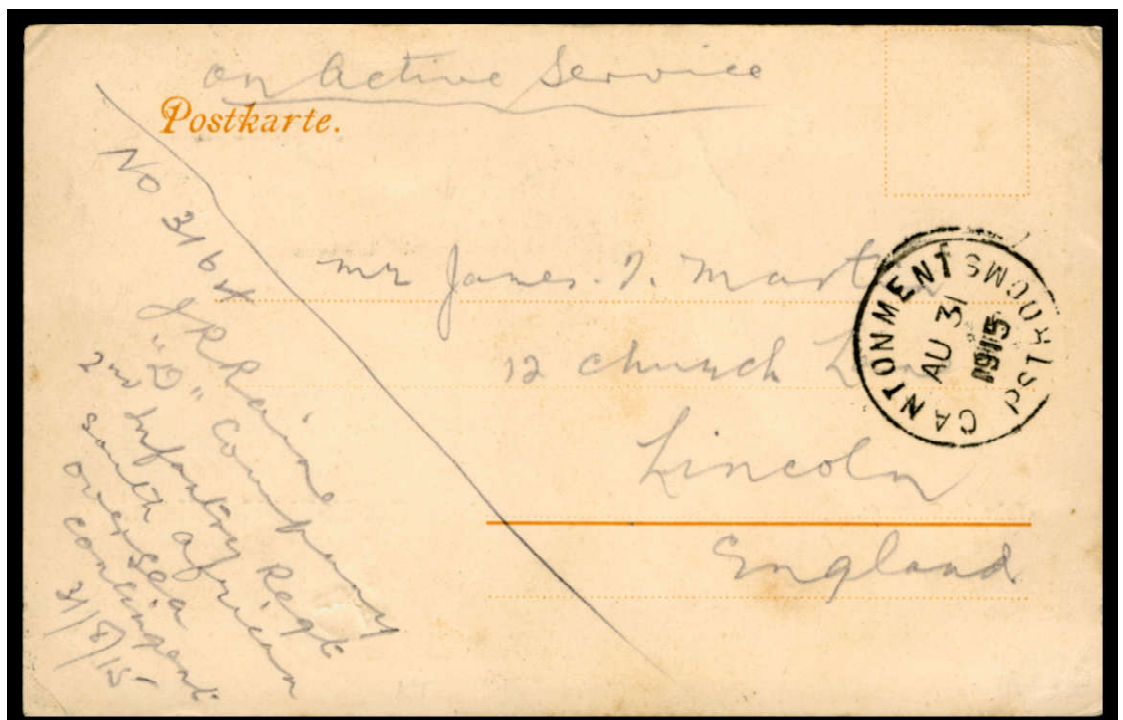 on Active Service
Postkarte.
No 3164
J R Raine
"D" Company
2nd Infantry Regt
South African
Oversea
Contingent
31/8/15
Mr James. T. Mart
12 Church Lane
Lincoln
England
CANTONMENTS
AU 31
1915